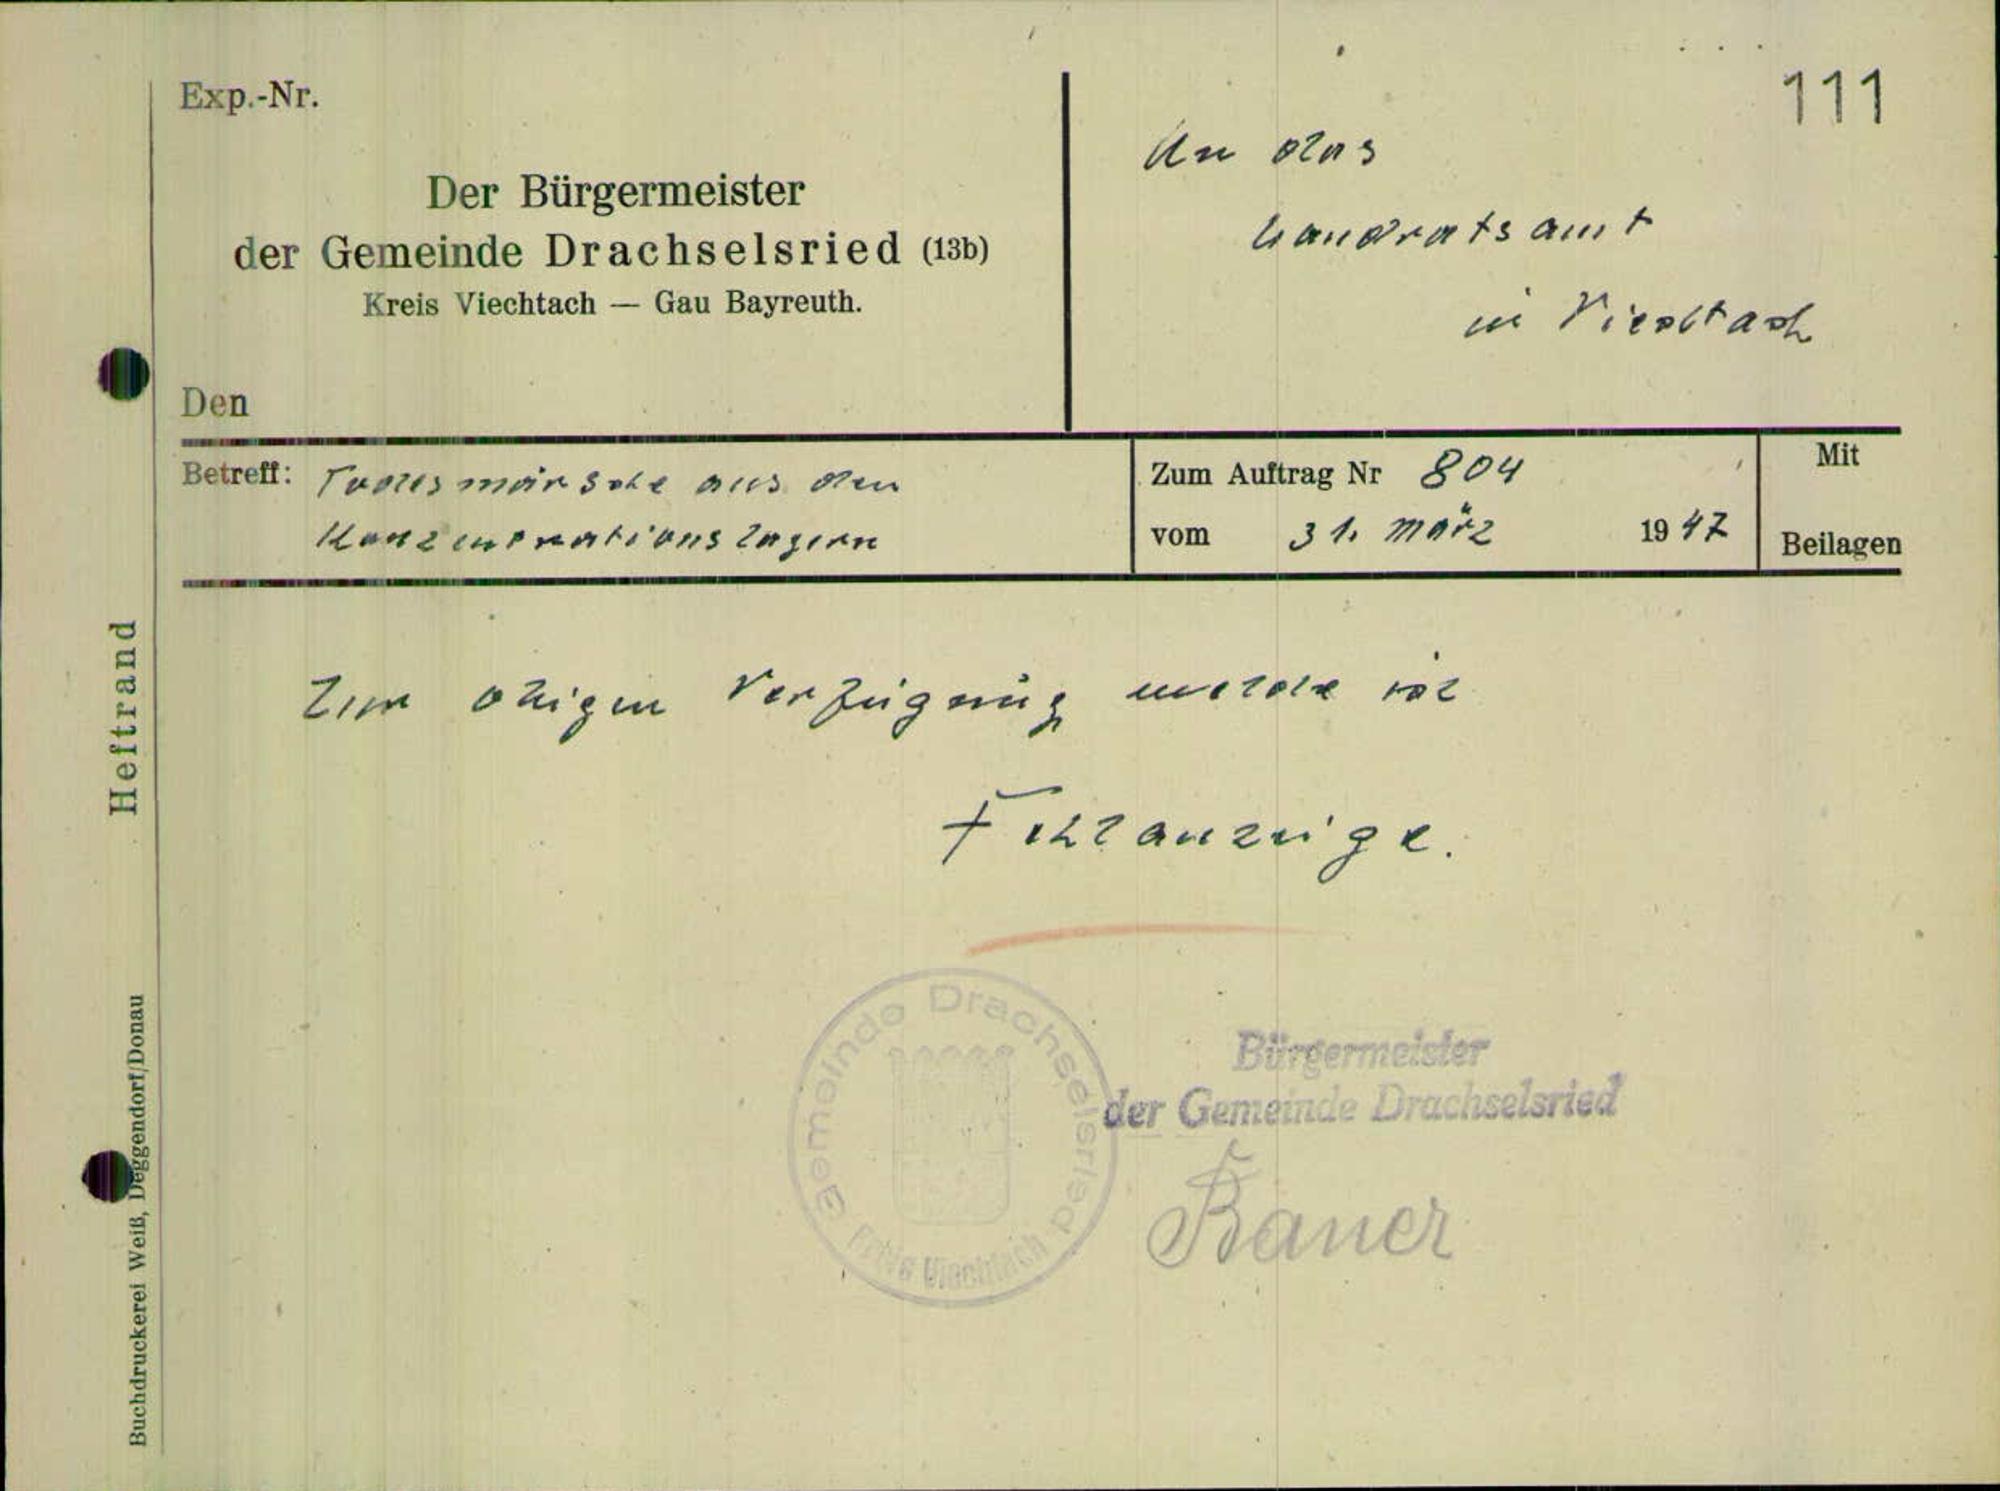 111
Exp.-Nr.
Der Bürgermeister
der Gemeinde Drachselsried (13b)
Kreis Viechtach — Gau Bayreuth.
Den
An das
Landratsamt
in Viechtach
Betreff: Todesmärsche aus den
Konzentrationslagern
Zum Auftrag Nr 804
vom 31. März 1947
Mit
Beilagen
Zur obigen Verfügung melde ich
Fehlanzeige.
Gemeinde Drachselsried
Kreis Viechtach
Bürgermeister
der Gemeinde Drachselsried
Bauer
Heftrand
Buchdruckerei Weiß, Deggendorf/Donau